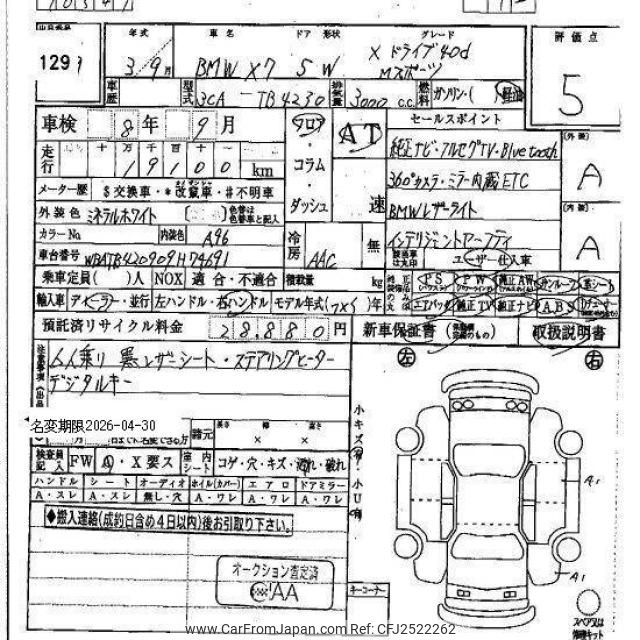 年式 車名 ドア 形状 グレード 評価点
129
3/9月 BMW X7 5 W X ドライブ40d
Mスポーツ
5
車歴 型式 3CA-TB4230 排気量 3000 C.C. 燃料 ガソリン・( )軽油
車検 8年 9月 フロア AT セールスポイント
純正ナビ・フルセグTV・Bluetooth (外装)
走行 十 万 千 百 十 一
19100 km
コラム 360°カメラ・ミラー内蔵ETC A
メーター歴 $交換車・*改竄車・#不明車 ダッシュ 速 BMWレーザーライト (内装)
外装色 ミネラルホワイト 色替は色替車と記入
カラーNo 内装色 A96 冷房 AAC 無 A
車台番号 WBATB420909H74691 ユーザー仕入車
乗車定員( )人 NOX 適合・不適合 積載量 kg
PS PW 純正AW サンルーフ 革シート
輸入車 ディーラー・並行 左ハンドル・右ハンドル モデル年式( )年 エアバッグ 純正TV 純正ナビ A.B.S
預託済リサイクル料金 28,880円 新車保証書 取扱説明書
注意事項
黒レザーシート・ステアリングヒーター
デジタルキー
左 右
名変期限2026-04-30
諸元 長さ 幅 高さ
× ×
検査員記入 FW A・X要ス 室内シート コゲ・穴・キズ・汚れ・破れ
ハンドル シート オーディオ ホイル(カバー) エアロ ドアミラー
A・スレ A・スレ 無し・穴 A・ワレ A・ワレ A・ワレ
小キズ 小U
◆搬入連絡(成約日含め4日以内)後お引取り下さい。
A1
A1
オークション査定済
AA
キーコーナー
スペアタイヤは修理キット
www.CarFromJapan.com Ref: CFJ2522262